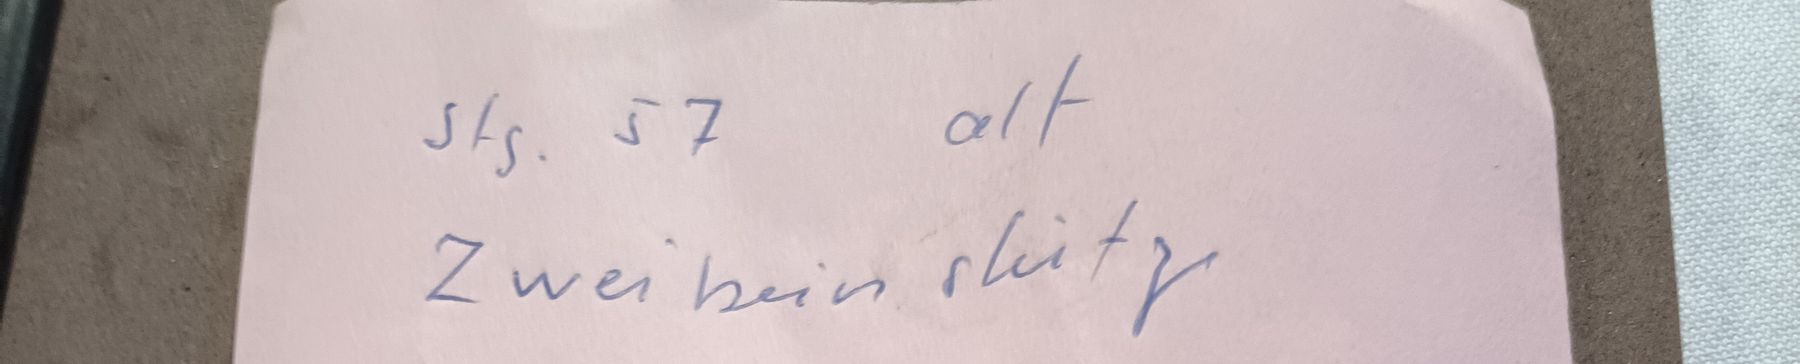 Stg. 57 alt
Zweibeinstütz